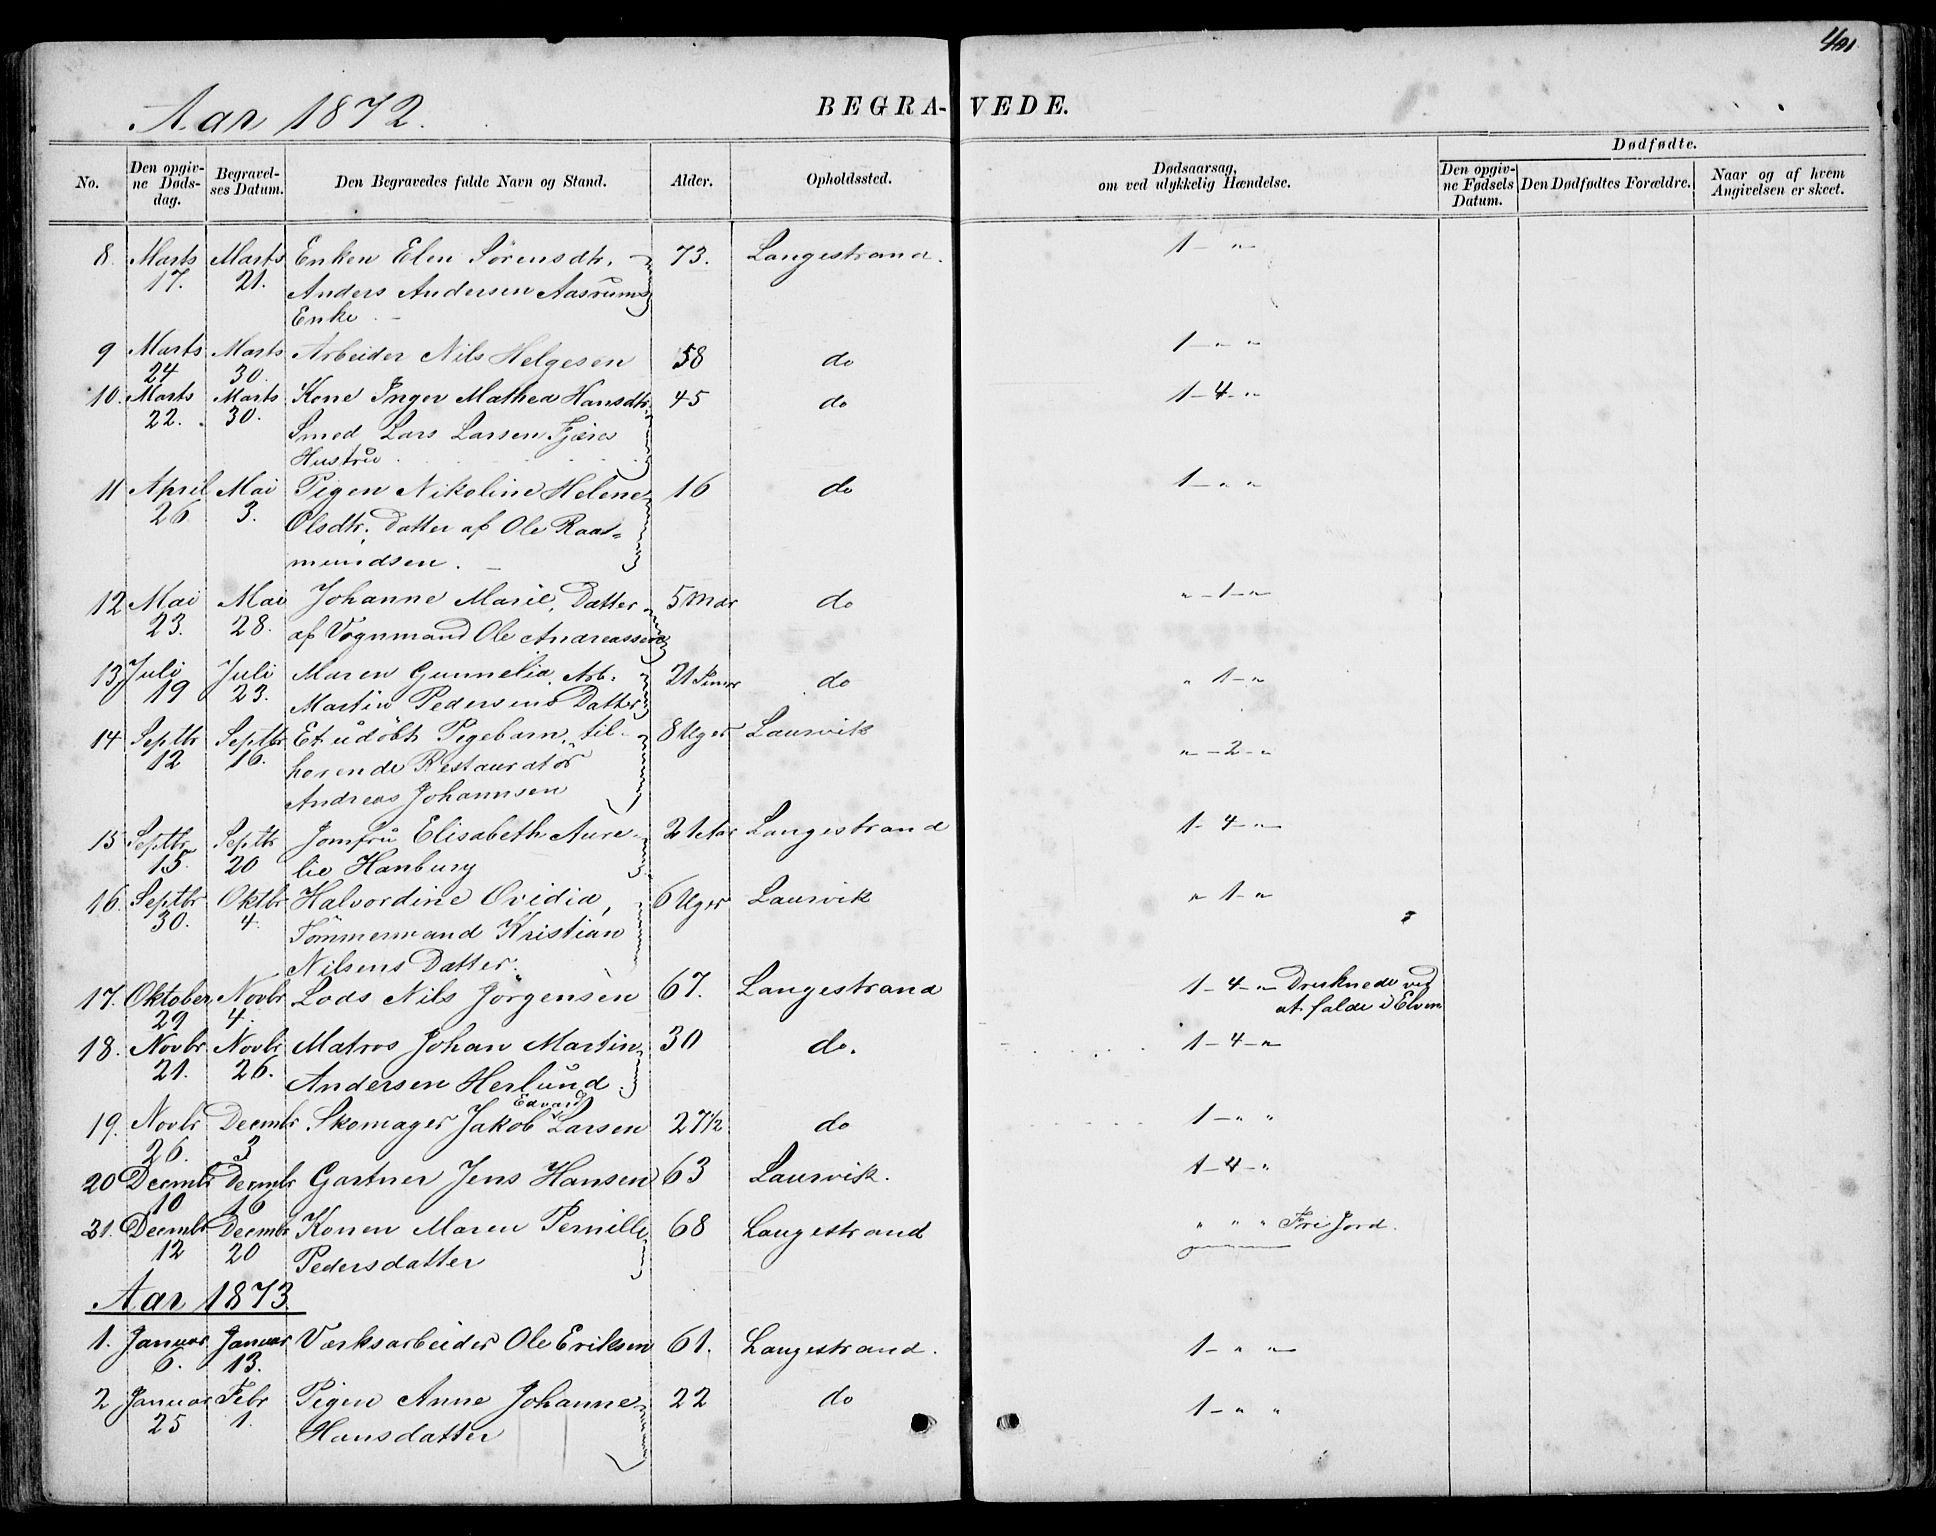 401
Aar 1872.
BEGRAVEDE.
No.
Den opgivne Dødsdag.
Begravelses Datum.
Den Begravedes fulde Navn og Stand.
Alder.
Opholdssted.
Dødsaarsag, om ved ulykkelig Hændelse.
Dødfødte.
Den opgivne Fødsels Datum.
Den Dødfødtes Forældre.
Naar og af hvem Angivelsen er skeet.
8. Marts 17. Marts 21. Enken Elen Sørensdtr. 73. Langestrand. 1 - " -
Anders Andersen Aasrums
Enke. -
9 Marts 24 Marts 30. Arbeider Nils Helgesen 58 do 1 - " "
10. Marts 22. Marts 30. Kone Inger Mathea Hansdtr. 45 do 1 - 4 - "
Smed Lars Larsen Fjæres
Hustru
11 April 26 Mai 3. Pigen Nikoline Helene 16 do 1 - " "
Olsdtr. Datter af Ole Raas=
mundsen. -
12 Mai 23. Mai 28. Johanne Marie, Datter 5 Mdr do " - 1 - "
af Vognmand Ole Andreassen
13 Juli 19 Juli 23. Maren Gunnelia, Arb. 21 Timer do " 1 - "
Martin Pedersens Datter
14 Septbr 12 Septbr 16. Et udøbt Pigebarn, til- 8 Uger Laurvik " - 2 - "
hørende Restauratør
Andreas Johannsen
15 Septbr 15. Septbr 20 Jomfru Elisabeth Aure- 21 Aar Langestrand 1 - 4 - "
lie Hanburg
16. Septbr 30. Oktbr 4. Halvordine Ovidia, 6 Uger Laurvik " 1 - "
Tømmermand Kristian
Nilsens Datter.
17. Oktober 29 Novbr 4. Lods Nils Jørgensen 67. Langestrand 1 - 4 - " Druknede ved
at falde i Elven
18. Novbr 21. Novbr 26. Matros Johan Martin 30 do. 1 - 4 - "
Andersen Herlund
19. Novbr 26. Decmbr 3 Skomager Jakob Edvard Larsen 27 1/2 do 1 - " "
20 Decmbr 10 Decmbr 16 Gartner Jens Hansen 63 Laurvik. 1 - 4 - "
21. Decmbr 12 Decmbr 20 Konen Maren Pernille 68 Langestrand " " " Fri Jord.
Pedersdatter
Aar 1873
1. Januar 6. Januar 13. Værksarbeider Ole Eriksen 61. Langestrand. 1 - " "
2 Januar 25 Febr 1. Pigen Anne Johanne 22 do 1 - " "
Hansdatter